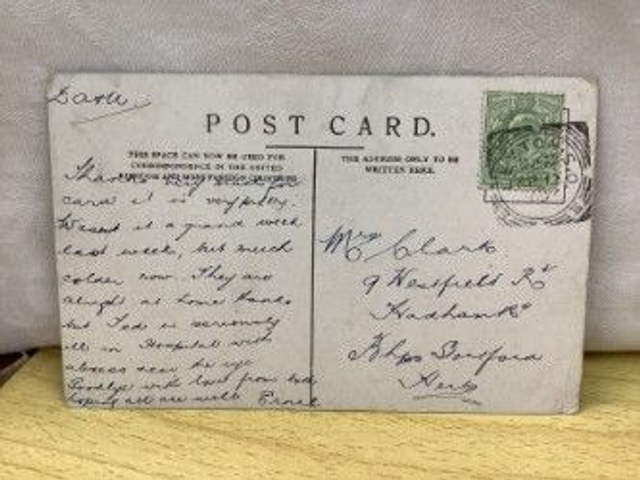 POST CARD.
THIS SPACE CAN NOW BE USED FOR
CORRESPONDENCE IN THE UNITED
KINGDOM AND MOST FOREIGN COUNTRIES
THE ADDRESS ONLY TO BE
WRITTEN HERE.
Thanks very much for
card it is very pretty.
Wasnt it a grand week
last week, but much
colder now. They are
alright at home
but Ted is seriously
ill in Hospital with
abscess near the eye
Goodbye with love from both
hoping all are well
Mrs Clark
9 Westfield Rd
Hadham Rd
Bhps Stortford
Herts